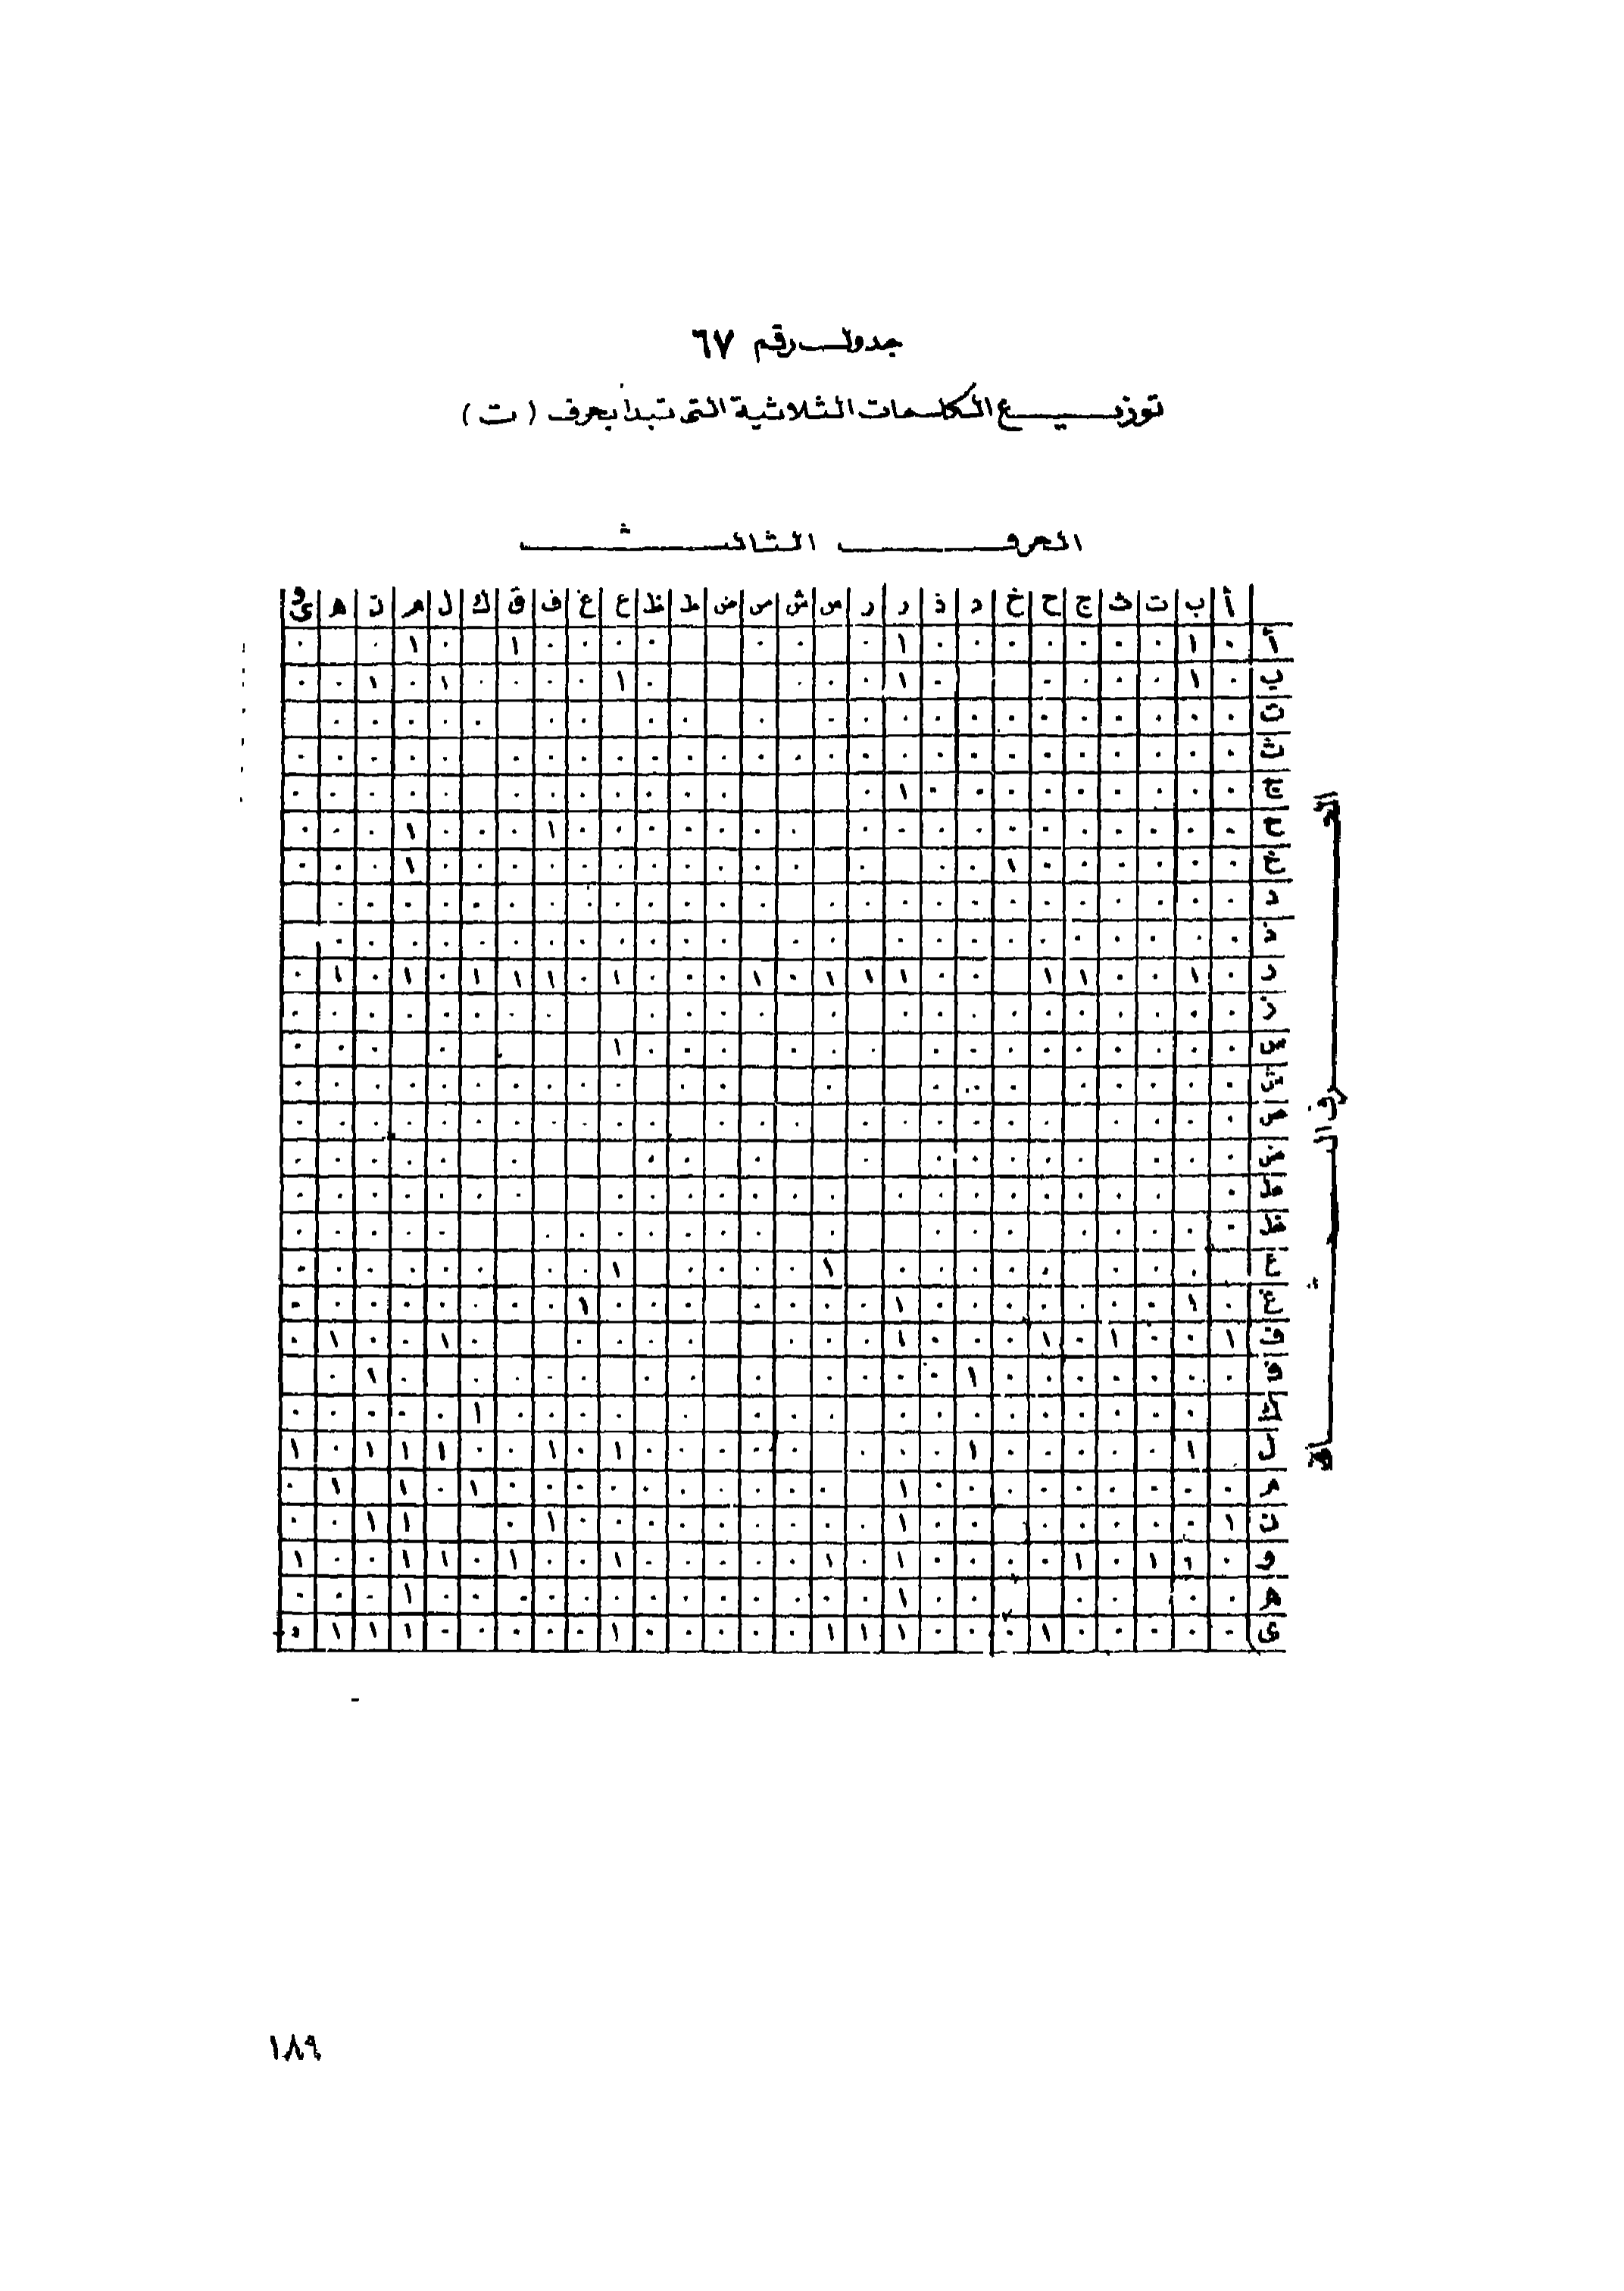 جدول رقم ٦٧
توزيع الكلمات الثلاثية التى تبدأ بحرف (ت)
الحرف الثالث
أ ب ت ث ج ح خ د ذ ر ز س ش ص ض ط ظ ع غ ف ق ك ل م ن ه و ى
الحرف الثانى
أ ٠ ١ ٠ ٠ ٠ ٠ ٠ ٠ ٠ ١ ٠ ٠ ٠ ٠ ٠ ٠ ٠ ١ ٠ ١ ٠ ٠
ب ٠ ١ ٠ ٠ ٠ ٠ ٠ ١ ٠ ٠ ٠ ٠ ١ ٠ ٠ ٠ ٠ ١ ٠ ١ ٠ ٠
ت ٠ ٠ ٠ ٠ ٠ ٠ ٠ ٠ ٠ ٠ ٠ ٠ ٠ ٠ ٠ ٠ ٠ ٠ ٠ ٠ ٠ ٠ ٠
ث ٠ ٠ ٠ ٠ ٠ ٠ ٠ ٠ ٠ ٠ ٠ ٠ ٠ ٠ ٠ ٠ ٠ ٠ ٠ ٠ ٠ ٠ ٠ ٠ ٠ ٠ ٠
ج ٠ ٠ ٠ ٠ ٠ ٠ ٠ ٠ ٠ ١ ٠ ٠ ٠ ٠ ٠ ٠ ٠ ٠ ٠ ٠ ٠ ٠ ٠
ح ٠ ٠ ٠ ٠ ٠ ٠ ٠ ٠ ٠ ٠ ٠ ٠ ٠ ٠ ٠ ٠ ٠ ٠ ١ ٠ ٠ ٠ ١ ٠ ٠ ٠
خ ٠ ٠ ٠ ٠ ٠ ٠ ١ ٠ ٠ ٠ ٠ ٠ ٠ ٠ ٠ ٠ ٠ ٠ ٠ ٠ ٠ ١ ٠ ٠ ٠
د ٠ ٠ ٠ ٠ ٠ ٠ ٠ ٠ ٠ ٠ ٠ ٠ ٠ ٠ ٠ ٠ ٠ ٠ ٠ ٠ ٠ ٠ ٠ ٠ ٠
ذ ٠ ٠ ٠ ٠ ٠ ٠ ٠ ٠ ٠ ٠ ٠ ٠ ٠ ٠ ٠ ٠ ٠ ٠ ٠ ٠ ٠ ٠ ٠ ٠
ر ٠ ١ ٠ ٠ ١ ١ ٠ ٠ ١ ١ ١ ٠ ١ ٠ ٠ ٠ ١ ٠ ١ ١ ١ ٠ ١ ٠ ١ ٠
ز ٠ ٠ ٠ ٠ ٠ ٠ ٠ ٠ ٠ ٠ ٠ ٠ ٠ ٠ ٠ ٠ ٠ ٠ ٠ ٠ ٠ ٠ ٠
س ٠ ٠ ٠ ٠ ٠ ٠ ٠ ٠ ٠ ٠ ٠ ٠ ٠ ٠ ٠ ١ ٠ ٠ ٠ ٠
ش ٠ ٠ ٠ ٠ ٠ ٠ ٠ ٠ ٠ ٠ ٠ ٠ ٠ ٠ ٠ ٠ ٠ ٠ ٠ ٠ ٠
ص ٠ ٠ ٠ ٠ ٠ ٠ ٠ ٠ ٠ ٠ ٠ ٠ ٠ ٠ ٠ ٠ ٠ ٠ ٠ ٠ ٠ ٠ ٠ ٠
ض ٠ ٠ ٠ ٠ ٠ ٠ ٠ ٠ ٠ ٠ ٠ ٠ ٠ ٠ ٠ ٠ ٠ ٠
ط ٠ ٠ ٠ ٠ ٠ ٠ ٠ ٠ ٠ ٠ ٠ ٠ ٠ ٠ ٠ ٠ ٠ ٠ ٠ ٠ ٠ ٠ ٠
ظ ٠ ٠ ٠ ٠ ٠ ٠ ٠ ٠ ٠ ٠ ٠ ٠ ٠ ٠ ٠ ٠ ٠ ٠ ٠ ٠
ع ٠ ٠ ٠ ٠ ٠ ٠ ٠ ٠ ١ ٠ ٠ ٠ ٠ ١ ٠ ٠ ٠ ٠ ٠ ٠ ٠ ٠
غ ٠ ١ ٠ ٠ ٠ ٠ ٠ ٠ ٠ ١ ٠ ٠ ٠ ٠ ٠ ٠ ٠ ١ ٠ ٠ ٠ ٠ ٠ ٠ ٠ ٠
ف ١ ٠ ٠ ١ ٠ ١ ٠ ٠ ٠ ١ ٠ ٠ ٠ ٠ ٠ ٠ ٠ ٠ ٠ ١ ٠ ٠ ١ ٠
ق ٠ ٠ ٠ ٠ ٠ ٠ ٠ ١ ٠ ٠ ٠ ٠ ٠ ٠ ٠ ٠ ٠ ٠ ٠ ٠ ١ ٠
ك ٠ ٠ ٠ ٠ ٠ ٠ ٠ ٠ ٠ ٠ ٠ ٠ ٠ ٠ ٠ ٠ ٠ ١ ٠ ٠ ٠ ٠ ٠
ل ١ ٠ ٠ ٠ ٠ ٠ ١ ٠ ٠ ٠ ٠ ٠ ٠ ٠ ٠ ١ ٠ ١ ٠ ٠ ١ ١ ١ ٠ ١
م ٠ ٠ ٠ ٠ ٠ ٠ ٠ ٠ ٠ ١ ٠ ٠ ٠ ٠ ٠ ٠ ٠ ٠ ٠ ٠ ١ ٠ ١ ٠ ١ ٠
ن ١ ٠ ٠ ٠ ٠ ٠ ٠ ٠ ١ ٠ ٠ ٠ ٠ ٠ ٠ ٠ ٠ ٠ ١ ٠ ١ ١ ٠ ٠
و ٠ ٠ ١ ٠ ١ ٠ ٠ ٠ ٠ ١ ٠ ١ ٠ ٠ ٠ ٠ ٠ ١ ٠ ٠ ١ ٠ ١ ١ ٠ ٠ ١
ه ٠ ٠ ٠ ٠ ٠ ٠ ١ ٠ ٠ ٠ ٠ ٠ ٠ ٠ ٠ ٠ ٠ ٠ ٠ ٠ ١ ٠ ٠ ٠
ى ٠ ٠ ٠ ٠ ٠ ١ ٠ ٠ ٠ ١ ١ ١ ٠ ٠ ٠ ٠ ٠ ١ ٠ ٠ ٠ ٠ ٠ ١ ١ ١ ٠
١٨٩